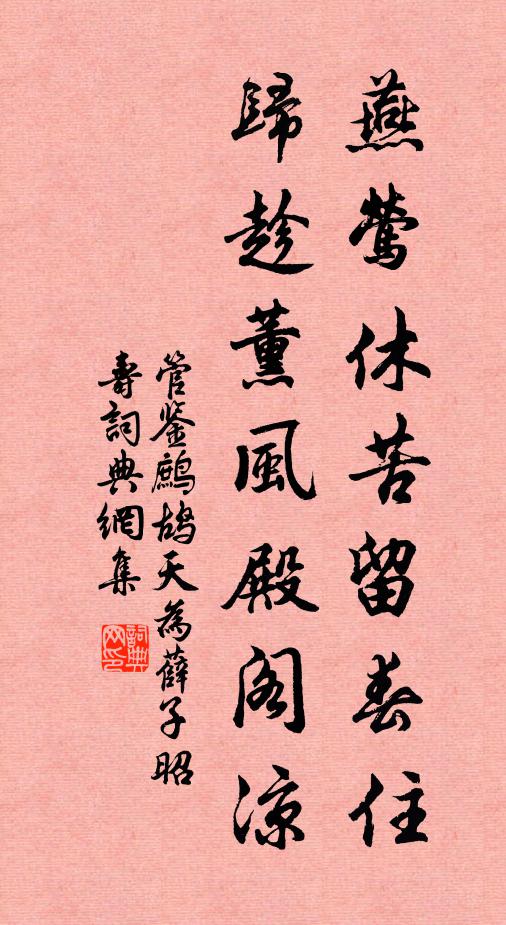 燕鶯休苦留春住
歸趁薰風殿阁涼
管鉴鷓鴣天為薛子昭
壽詞典網集
詞典网印